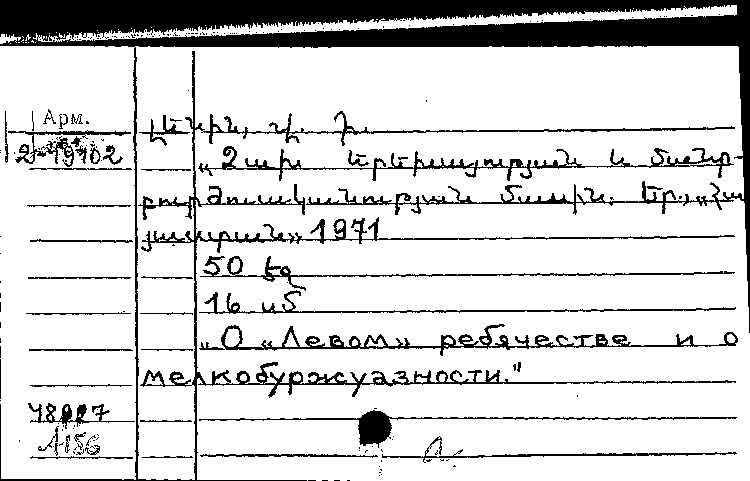 Арм.
Լենին, Վ. Ի.
2-19702
„Ձախ երեխայության և մանր-
բուրժուականության մասին. Եր., „Հա
յաստան» 1971
50 էջ
16 սմ
„О «Левом» ребячестве и о
мелкобуржуазности."
А186